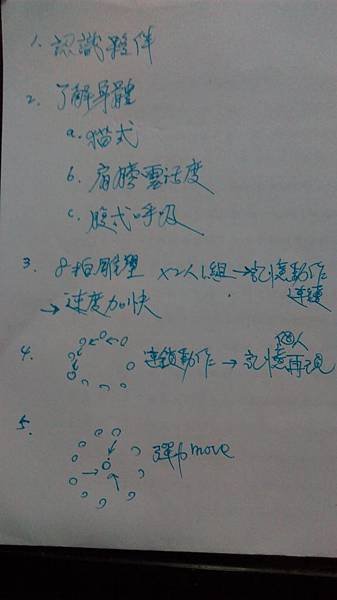 1. 認識夥伴
2. 了解身體
a. 貓式
b. 肩膀靈活度
c. 腹式呼吸
3. 8拍雕塑 x2人1組→記憶動作
連續
→速度加快
4. 連鎖動作→記憶再現
5. 彈力move